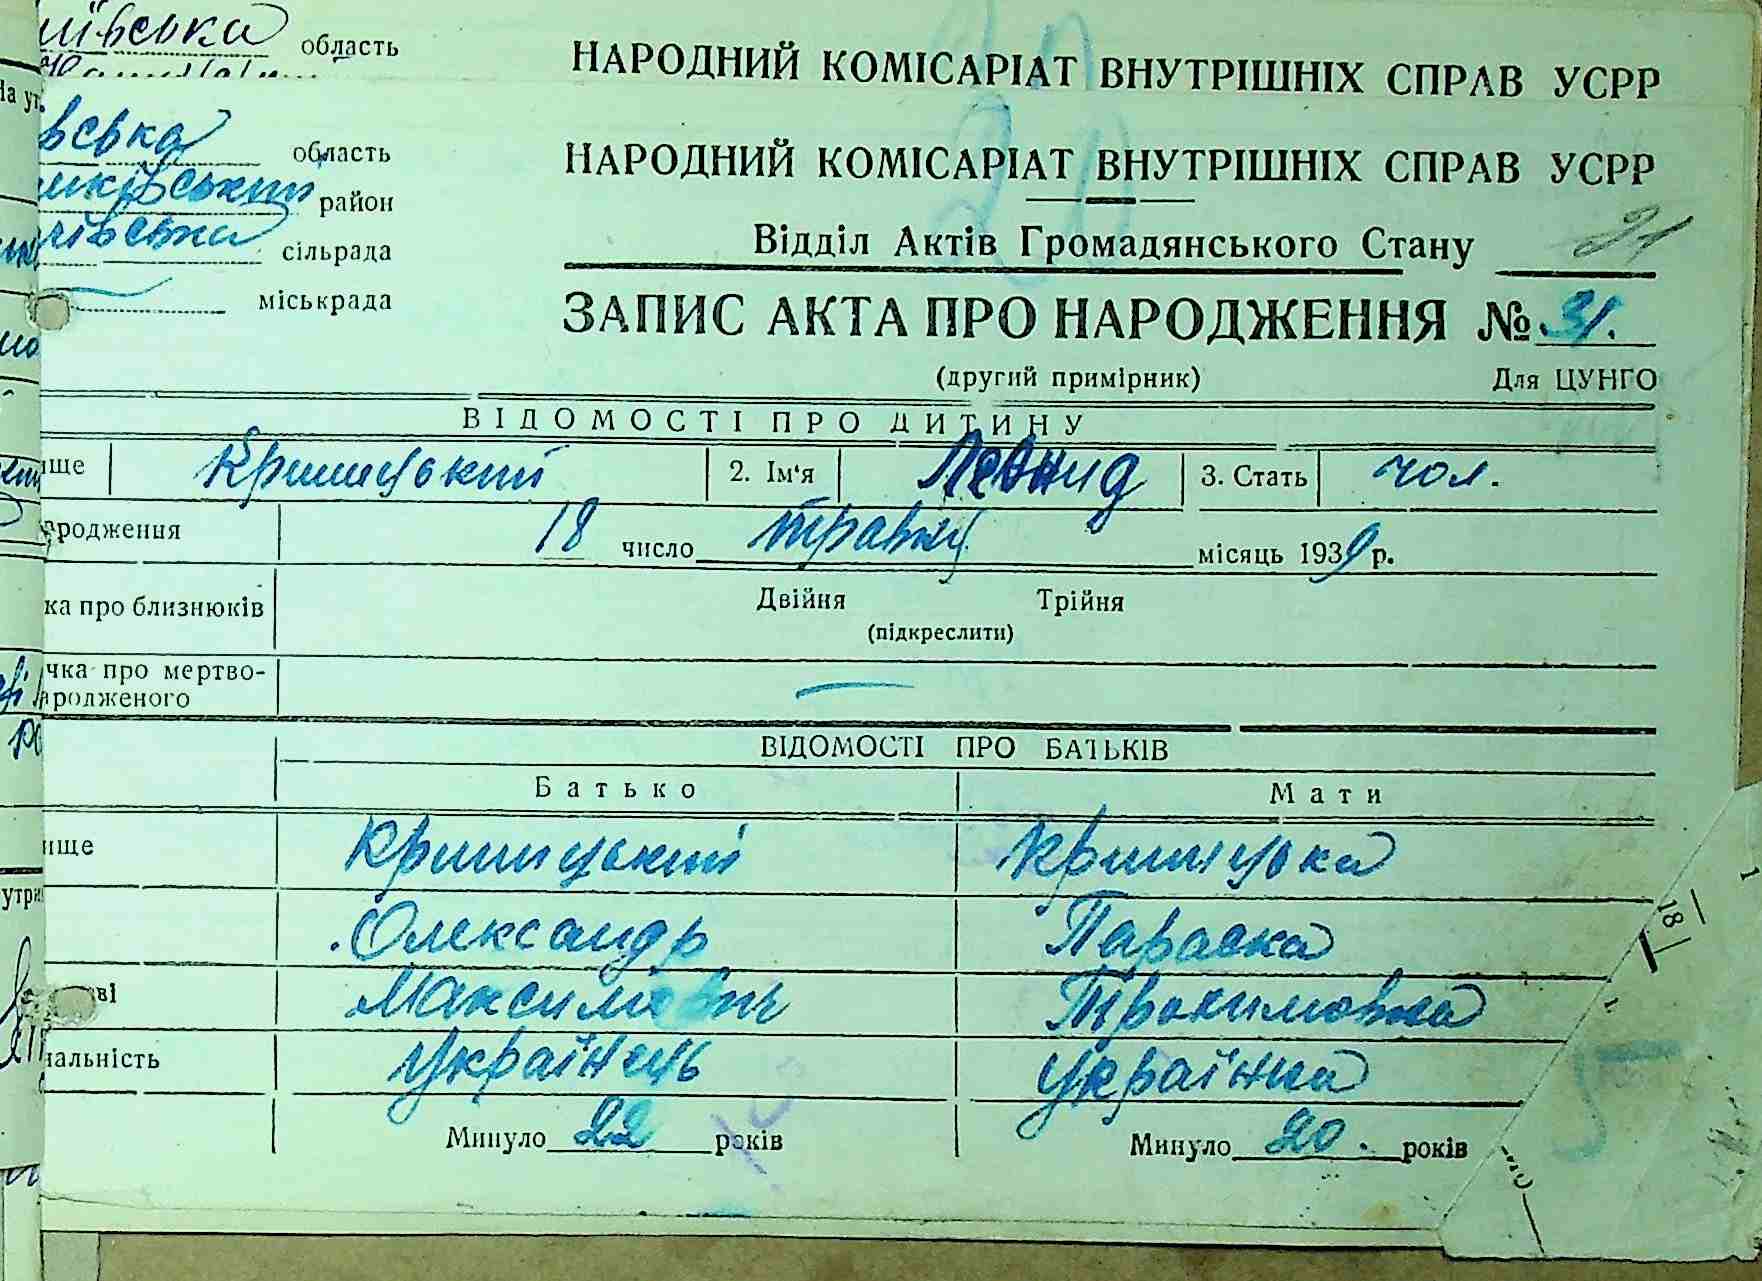 ївська область
НАРОДНИЙ КОМІСАРІАТ ВНУТРІШНІХ СПРАВ УСРР
вська область
НАРОДНИЙ КОМІСАРІАТ ВНУТРІШНІХ СПРАВ УСРР
ківський район
Відділ Актів Громадянського Стану 21
івська сільрада
міськрада
ЗАПИС АКТА ПРО НАРОДЖЕННЯ № 31.
(другий примірник) Для ЦУНГО
ВІДОМОСТІ ПРО ДИТИНУ
ище Кришицький 2. Ім'я Леонид 3. Стать чол.
ародження 18 число травня місяць 1939 р.
ка про близнюків Двійня Трійня
(підкреслити)
чка про мертво-
ародженого
ВІДОМОСТІ ПРО БАТЬКІВ
Батько Мати
ище Кришицький Кришицька
Олександр Параска
ові Максимович Трохимовна
нальність Українець Українка
Минуло 22 років Минуло 20. років